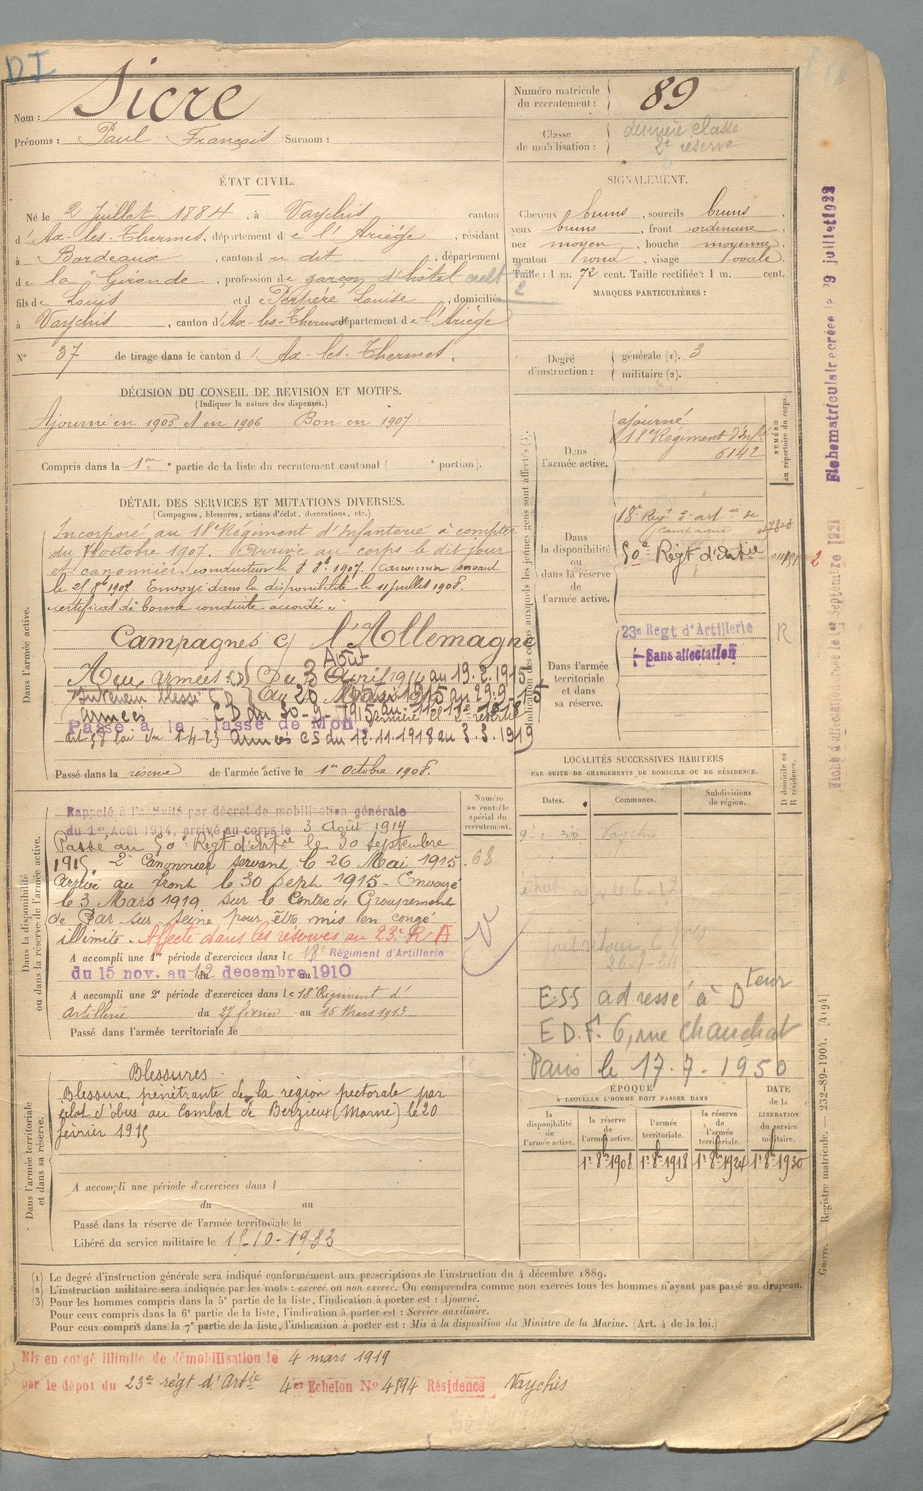 DI
Nom : Sicre
Prénoms : Paul François Surnom :
Numéro matricule du recrutement : 89
Classe de mobilisation : dernière classe 2e réserve
ÉTAT CIVIL.
Né le 2 Juillet 1884, à Vaychis canton
d' Ax-les-Thermes, département de l'Ariège, résidant
à Bordeaux, canton du dit, département
de la Gironde, profession de garçon d'hôtel cult
fils de Louis et de Perpère Louise, domiciliés
à Vaychis, canton d'Ax-les-Thermes département de l'Ariège
N° 37 de tirage dans le canton d' Ax-les-Thermes.
SIGNALEMENT.
Cheveux bruns, sourcils bruns
yeux bruns, front ordinaire
nez moyen, bouche moyenne
menton rond, visage ovale
Taille : 1 m. 72 cent. Taille rectifiée : 1 m. cent.
2
MARQUES PARTICULIÈRES :
Degré d'instruction : générale (1). 3
militaire (2).
DÉCISION DU CONSEIL DE REVISION ET MOTIFS.
(Indiquer la nature des dispenses.)
Ajourné en 1905 et en 1906 Bon en 1907
Compris dans la 1re partie de la liste du recrutement cantonal ( e portion).
DÉTAIL DES SERVICES ET MUTATIONS DIVERSES.
(Campagnes, blessures, actions d'éclat, décorations, etc.)
Dans l'armée active.
Incorporé au 18e Régiment d'Infanterie à compter
du 1er octobre 1907. Arrivé au corps le dit jour
et canonnier conducteur le 8 8bre 1907. Canonnier servant
le 2 8bre 1908. Envoyé dans la disponibilité le 11 juillet 1908.
certificat de bonne conduite accordé.
Campagnes c/ l'Allemagne
Aux armées
Du 3 Août 1914 au 19.2.1915
Intérieur blessé
armées CD du 30-9-1915 au 11-11-1918
Passé à la classe de Mob.
art 58 loi du 1-4-23 Armées CS du 12.11.1918 au 3.3.1919
Passé dans la réserve de l'armée active le 1er Octobre 1908.
Indication des corps auxquels les jeunes gens sont affectés (3).
NUMÉRO au répertoire du corps.
Dans l'armée active.
ajourné
18e Régiment d'Infie
6142
Dans la disponibilité ou dans la réserve de l'armée active.
50e Régt d'Artie
Dans l'armée territoriale et dans sa réserve.
23e Regt d'Artillerie R
Sans affectation
LOCALITÉS SUCCESSIVES HABITÉES
PAR SUITE DE CHANGEMENTS DE DOMICILE OU DE RÉSIDENCE.
Dates. Communes. Subdivisions de région. D domicile ou R résidence.
Vaychis
ESS adressé à Dteur
E D F. 6, rue Chauchat
Paris le 17-7-1950
Dans la disponibilité ou dans la réserve de l'armée active.
Numéro au contrôle spécial du recrutement.
68
Rappelé à l'activité par décret de mobilisation générale
du 1er Août 1914, arrivé au corps le 3 août 1914
Passé au 50e Régt d'Artie le 30 septembre
1915 2e Canonnier servant le 26 Mai 1915
Arrivé au front le 30 Septh 1915 - Envoyé
le 3 Mars 1919 sur le Centre de Groupement
de Bar-sur-Seine pour être mis en congé
illimité. Affecté dans les réserves au 23e R A
A accompli une 1re période d'exercices dans le 18e Régiment d'Artillerie
du 15 nov. au 12 decembre 1910
A accompli une 2e période d'exercices dans le 18e Régiment d'
Artillerie du 27 février au 15 Mars 1913
Passé dans l'armée territoriale le
ÉPOQUE
À LAQUELLE L'HOMME DOIT PASSER DANS
la disponibilité de l'armée active. la réserve de l'armée active. l'armée territoriale. la réserve de l'armée territoriale. DATE de la LIBÉRATION du service militaire.
1er 8bre 1908 1er 8bre 1918 1er 8bre 1924 1er 8bre 1930
Dans l'armée territoriale et dans sa réserve.
Blessures.
Blessure pénétrante de la région pectorale par
éclat d'obus au Combat de Berzieux (Marne) le 20
février 1915
A accompli une période d'exercices dans l
du au
Passé dans la réserve de l'armée territoriale le
Libéré du service militaire le 15-10-1933
(1) Le degré d'instruction générale sera indiqué conformément aux prescriptions de l'instruction du 4 décembre 1889.
(2) L'instruction militaire sera indiquée par les mots : exercé ou non exercé. On comprendra comme non exercés tous les hommes n'ayant pas passé au drapeau.
(3) Pour les hommes compris dans la 5e partie de la liste, l'indication à porter est : Ajourné.
Pour ceux compris dans la 6e partie de la liste, l'indication à porter est : Service auxiliaire.
Pour ceux compris dans la 7e partie de la liste, l'indication à porter est : Mis à la disposition du Ministre de la Marine. (Art. 4 de la loi.)
Mis en congé illimité de démobilisation le 4 mars 1919
par le dépôt du 23e régt d'Artie 4er Echelon N° 4594 Résidence Vaychis
Fiche matriculaire créée le 29 juillet 1922
Fiche d'affectation créée le 1er Septembre 1921
Guerre. — Registre matricule. — 232-89-1904. [4194]